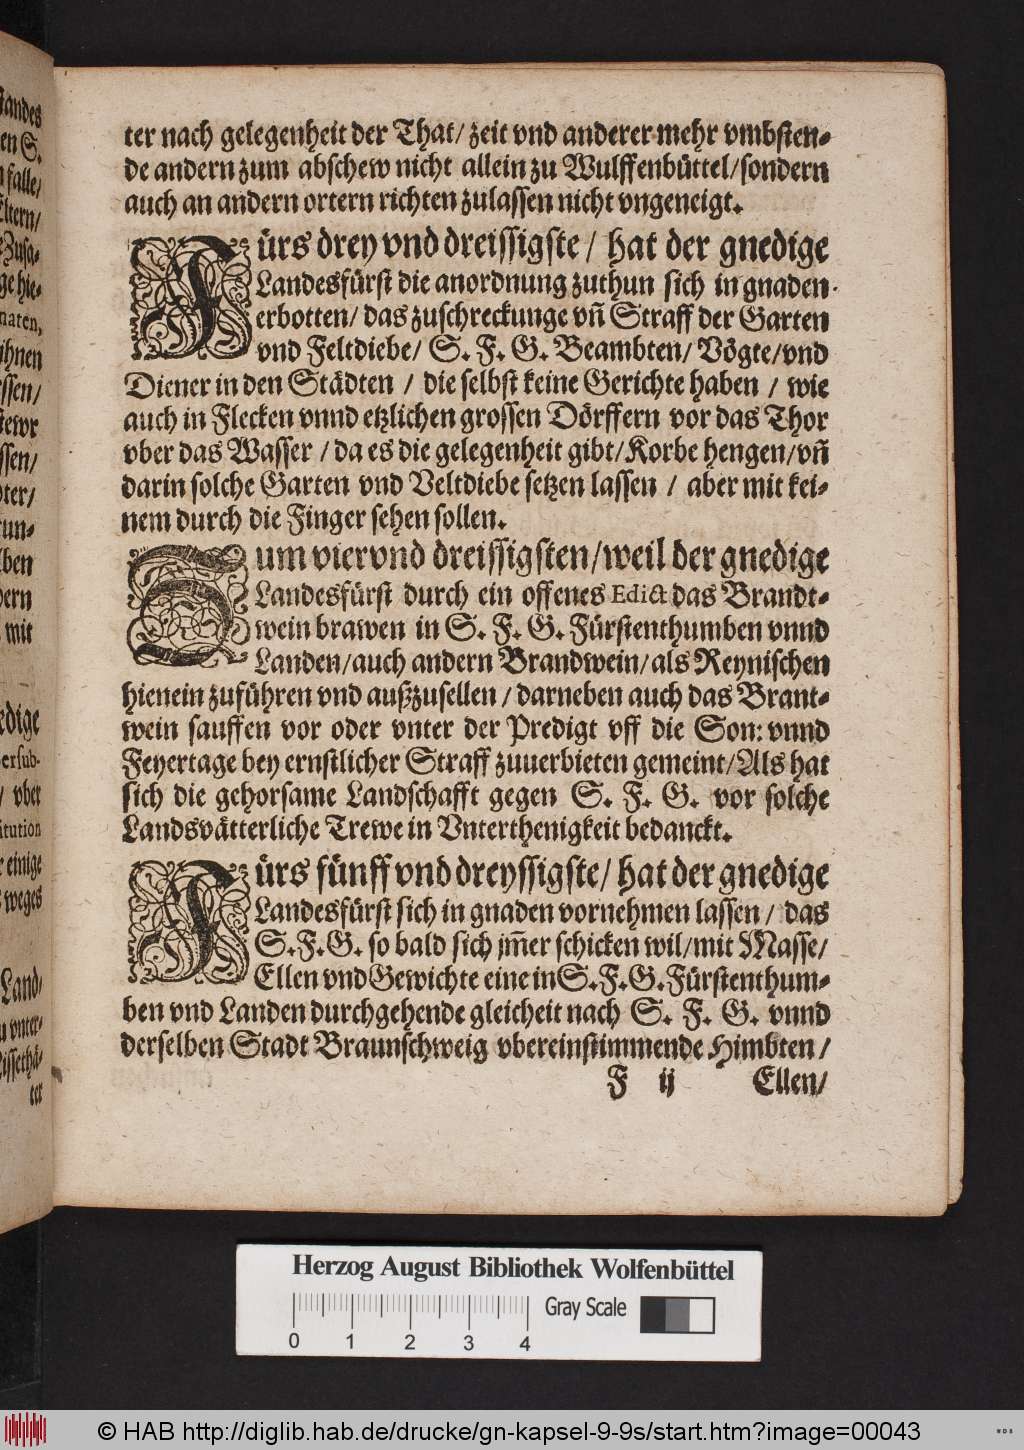 ter nach gelegenheit der That/ zeit vnd anderer mehr vmbsten-
de andern zum abschew nicht allein zu Wulffenbüttel/sondern
auch an andern ortern richten zulassen nicht vngeneigt.
Fürs drey vnd dreissigste / hat der gnedige
Landesfürst die anordnung zuthun sich in gnaden
erbotten/ das zuschreckunge vñ Straff der Garten
vnd Feltdiebe/ S. F. G. Beambten/ Vögte/vnd
Diener in den Städten / die selbst keine Gerichte haben / wie
auch in Flecken vnnd etzlichen grossen Dörffern vor das Thor
vber das Wasser / da es die gelegenheit gibt/Korbe hengen/vñ
darin solche Garten vnd Veltdiebe setzen lassen / aber mit kei-
nem durch die Finger sehen sollen.
Zum viervnd dreissigsten/weil der gnedige
Landesfürst durch ein offenes Edict das Brandt-
wein brawen in S. F. G. Fürstenthumben vnnd
Landen/auch andern Brandwein/als Reynischen
hienein zuführen vnd außzusellen / darneben auch das Brant-
wein sauffen vor oder vnter der Predigt vff die Son: vnnd
Feyertage bey ernstlicher Straff zuuerbieten gemeint/Als hat
sich die gehorsame Landschafft gegen S. F. G. vor solche
Landsvätterliche Trewe in Vnterthenigkeit bedanckt.
Fürs fünff vnd dreyssigste/ hat der gnedige
Landesfürst sich in gnaden vornehmen lassen / das
S.F.G. so bald sich jm̃er schicken wil/mit Masse/
Ellen vnd Gewichte eine in S.F.G.Fürstenthum-
ben vnd Landen durchgehende gleicheit nach S. F. G. vnnd
derselben Stadt Braunschweig vbereinstimmende Himbten /
F ij Ellen/
Herzog August Bibliothek Wolfenbüttel
Gray Scale
0 1 2 3 4
© HAB http://diglib.hab.de/drucke/gn-kapsel-9-9s/start.htm?image=00043